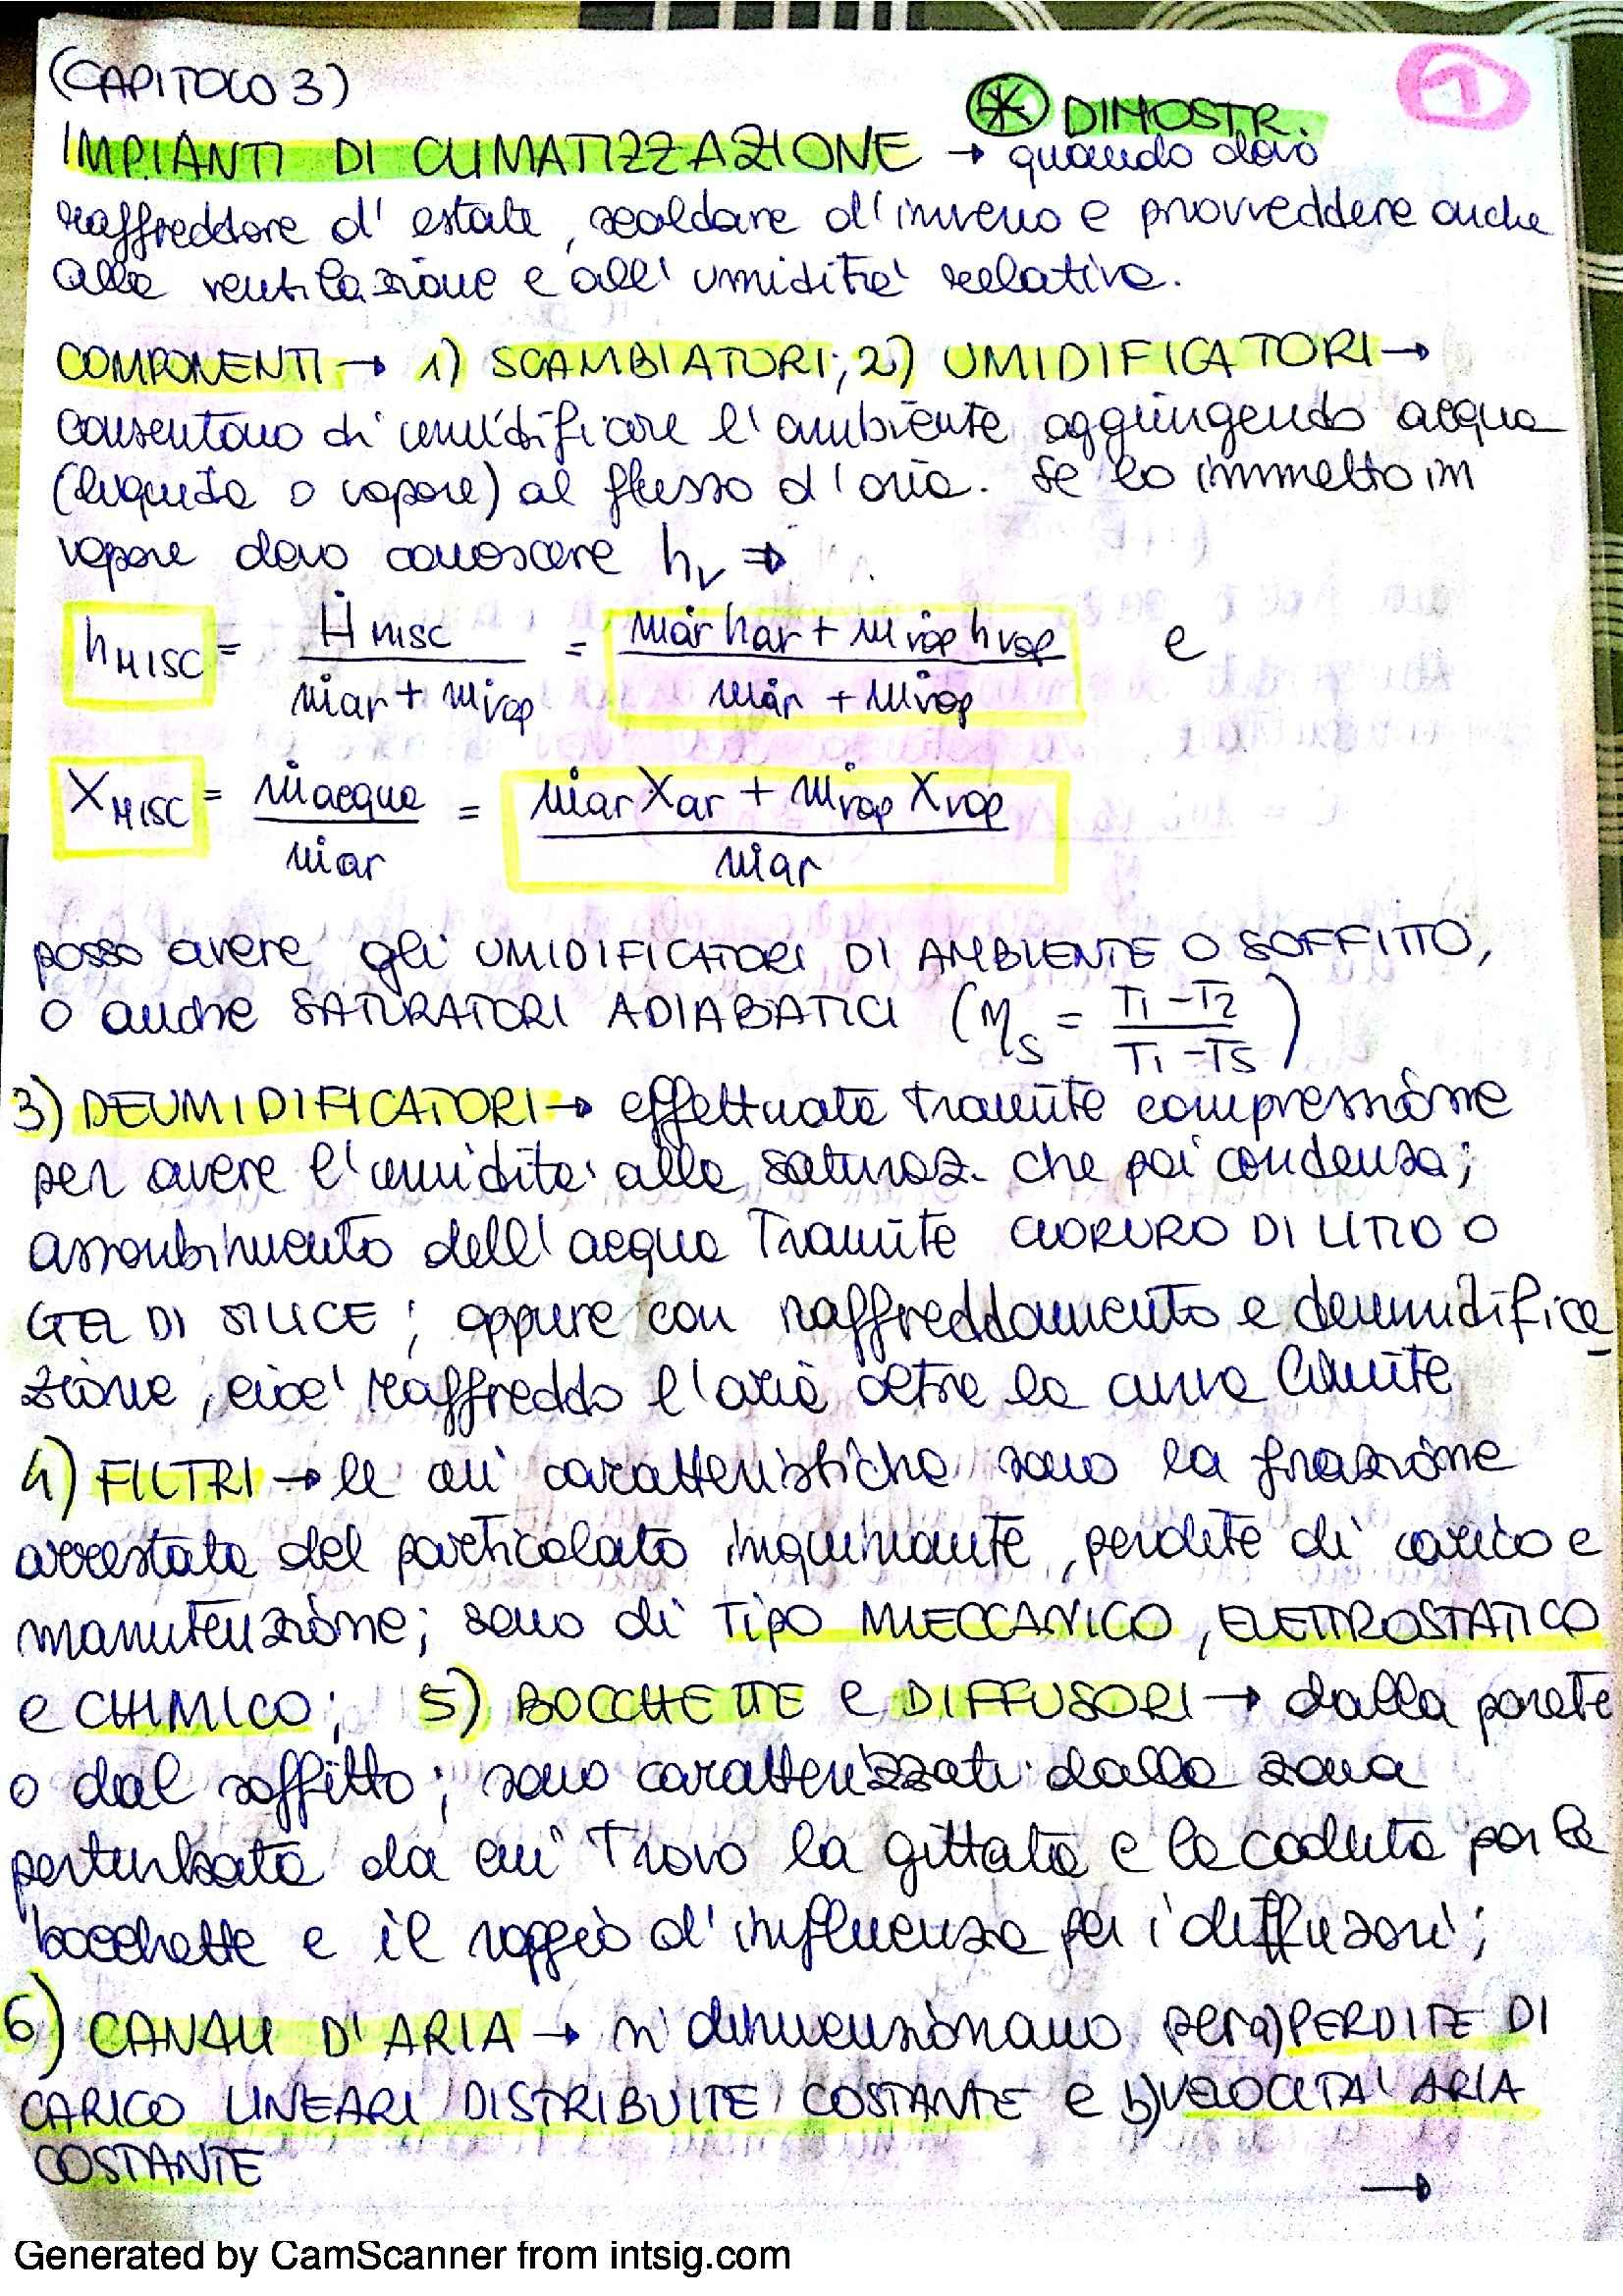 (CAPITOLO 3)
1
⊛ DIMOSTR.
IMPIANTI DI CLIMATIZZAZIONE → quando devo
raffreddare d'estate, scaldare d'inverno e provvedere anche
alla ventilazione e all'umidità relativa.
COMPONENTI → 1) SCAMBIATORI; 2) UMIDIFICATORI →
consentono di umidificare l'ambiente aggiungendo acqua
(liquida o vapore) al flusso d'aria. Se la immetto in
vapore devo conoscere hv ⇒
hMISC = ḢMISC / (ṁar + ṁvap) = (ṁar har + ṁvap hvap) / (ṁar + ṁvap) e
XMISC = ṁacqua / ṁar = (ṁar Xar + ṁvap Xvap) / ṁar
posso avere gli UMIDIFICATORI DI AMBIENTE O SOFFITTO,
o anche SATURATORI ADIABATICI (ηs = (T1 - T2) / (T1 - Ts))
3) DEUMIDIFICATORI → effettuata tramite compressione
per avere l'umidità alla saturaz. che poi condensa;
assorbimento dell'acqua tramite CLORURO DI LITIO O
GEL DI SILICE; oppure con raffreddamento e deumidifica
zione, cioè raffreddo l'aria oltre la curva limite
4) FILTRI → le cui caratteristiche sono la frazione
arrestata del particolato inquinante, perdite di carico e
manutenzione; sono di tipo MECCANICO, ELETTROSTATICO
e CHIMICO; 5) BOCCHETTE e DIFFUSORI → dalla parete
o dal soffitto; sono caratterizzati dalla zona
perturbata da cui trovo la gittata e la caduta per le
bocchette e il raggio d'influenza per i diffusori;
6) CANALI D'ARIA → si dimensionano per a) PERDITE DI
CARICO LINEARI DISTRIBUITE COSTANTE e b) VELOCITA' ARIA
COSTANTE
→
Generated by CamScanner from intsig.com